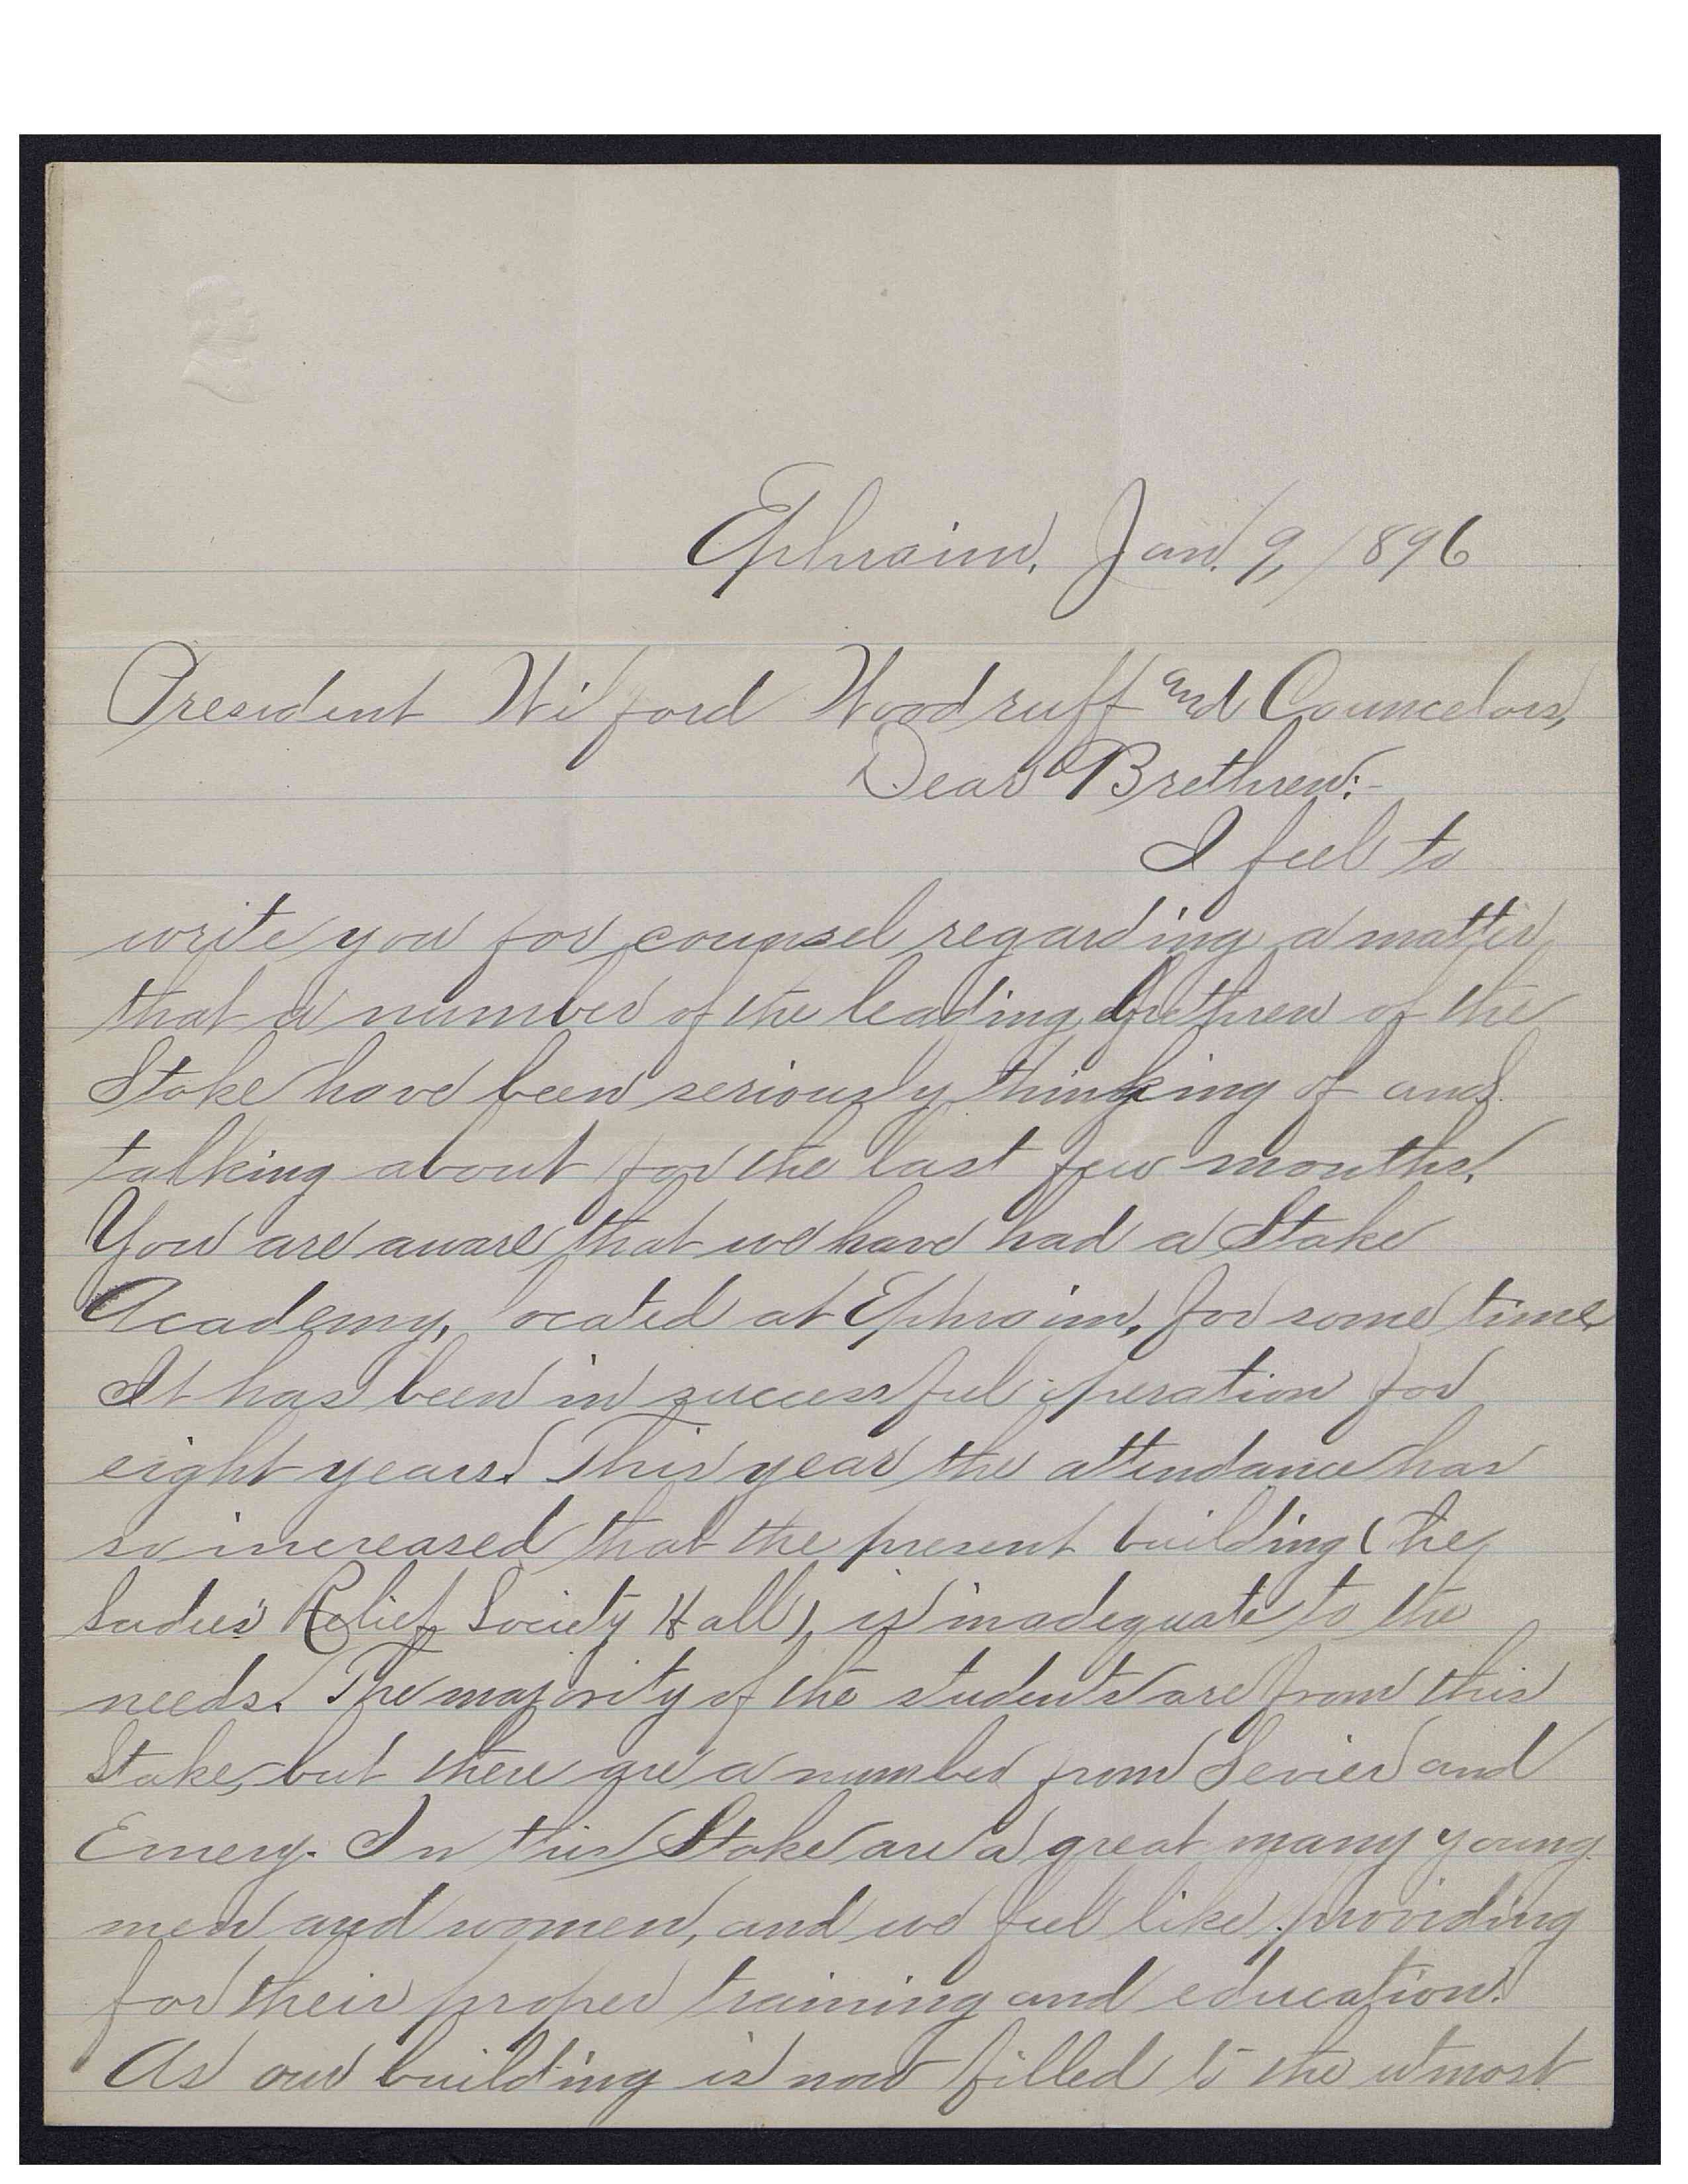 Ephraim, Jan. 9, 1896
President Wilford Woodruff and Councelors,
Dear Brethren:-
I feel to
write you for counsel regarding a matter
that a number of the leading brethren of the
Stake have been seriously thinking of and
talking about for the last few months.
You are aware that we have had a Stake
Academy, located at Ephraim, for some time,
It has been in successful operation for
eight years. This year the attendance has
so increased that the present building (the
Ladies' Relief Society Hall), is inadequate to the
needs. The majority of the students are from this
Stake, but there are a number from Sevier and
Emery. In this Stake are a great many young
men and women, and we feel like providing
for their proper training and education.
As our building is now filled to the utmost